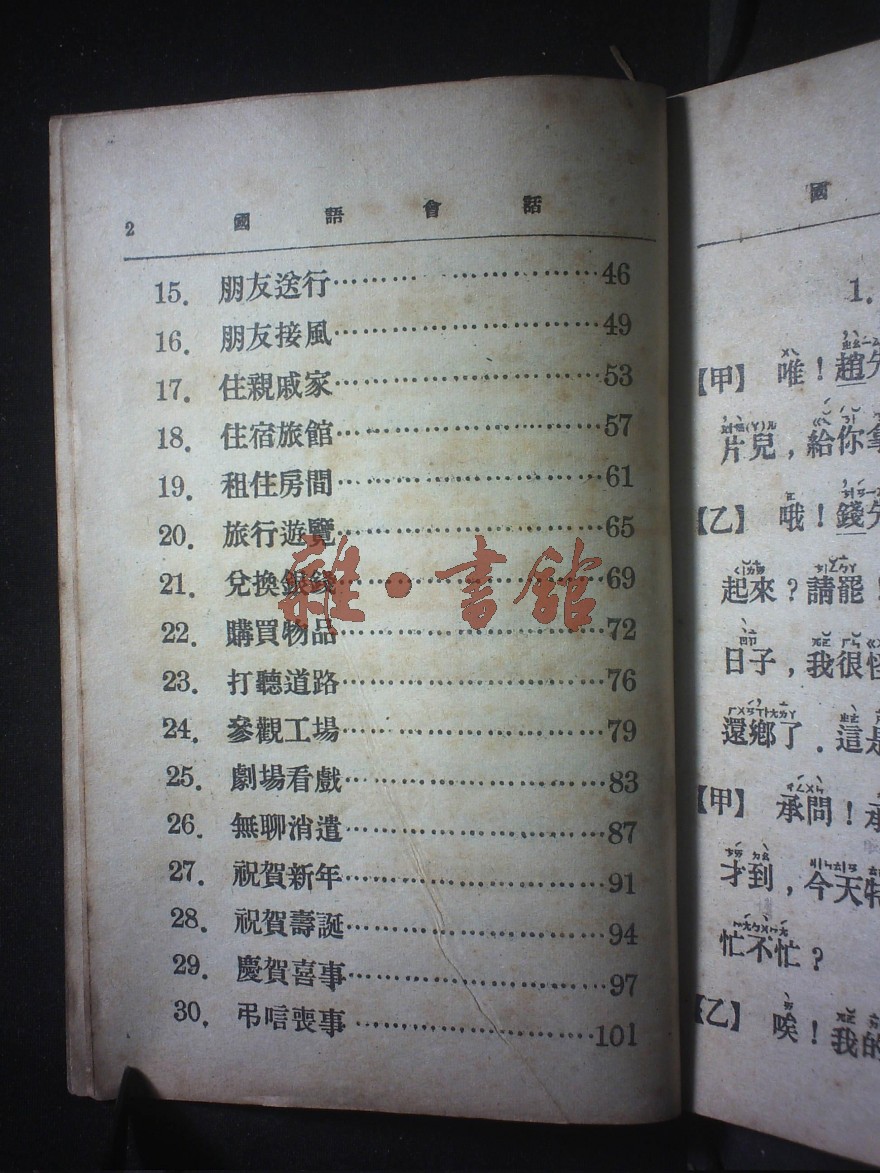 2 國語會話
15. 朋友送行 46
16. 朋友接風 49
17. 住親戚家 53
18. 住宿旅館 57
19. 租住房間 61
20. 旅行遊覽 65
21. 兌換銀錢 69
22. 購買物品 72
23. 打聽道路 76
24. 參觀工場 79
25. 劇場看戲 83
26. 無聊消遣 87
27. 祝賀新年 91
28. 祝賀壽誕 94
29. 慶賀喜事 97
30. 弔唁喪事 101
雜·書館
國
1.
【甲】 唯！趙先
片兒，給你拿
【乙】 哦！錢先
起來？請罷！
日子，我很怪
還鄉了．這是
【甲】 承問！承
才到，今天特
忙不忙？
【乙】 唉！我的